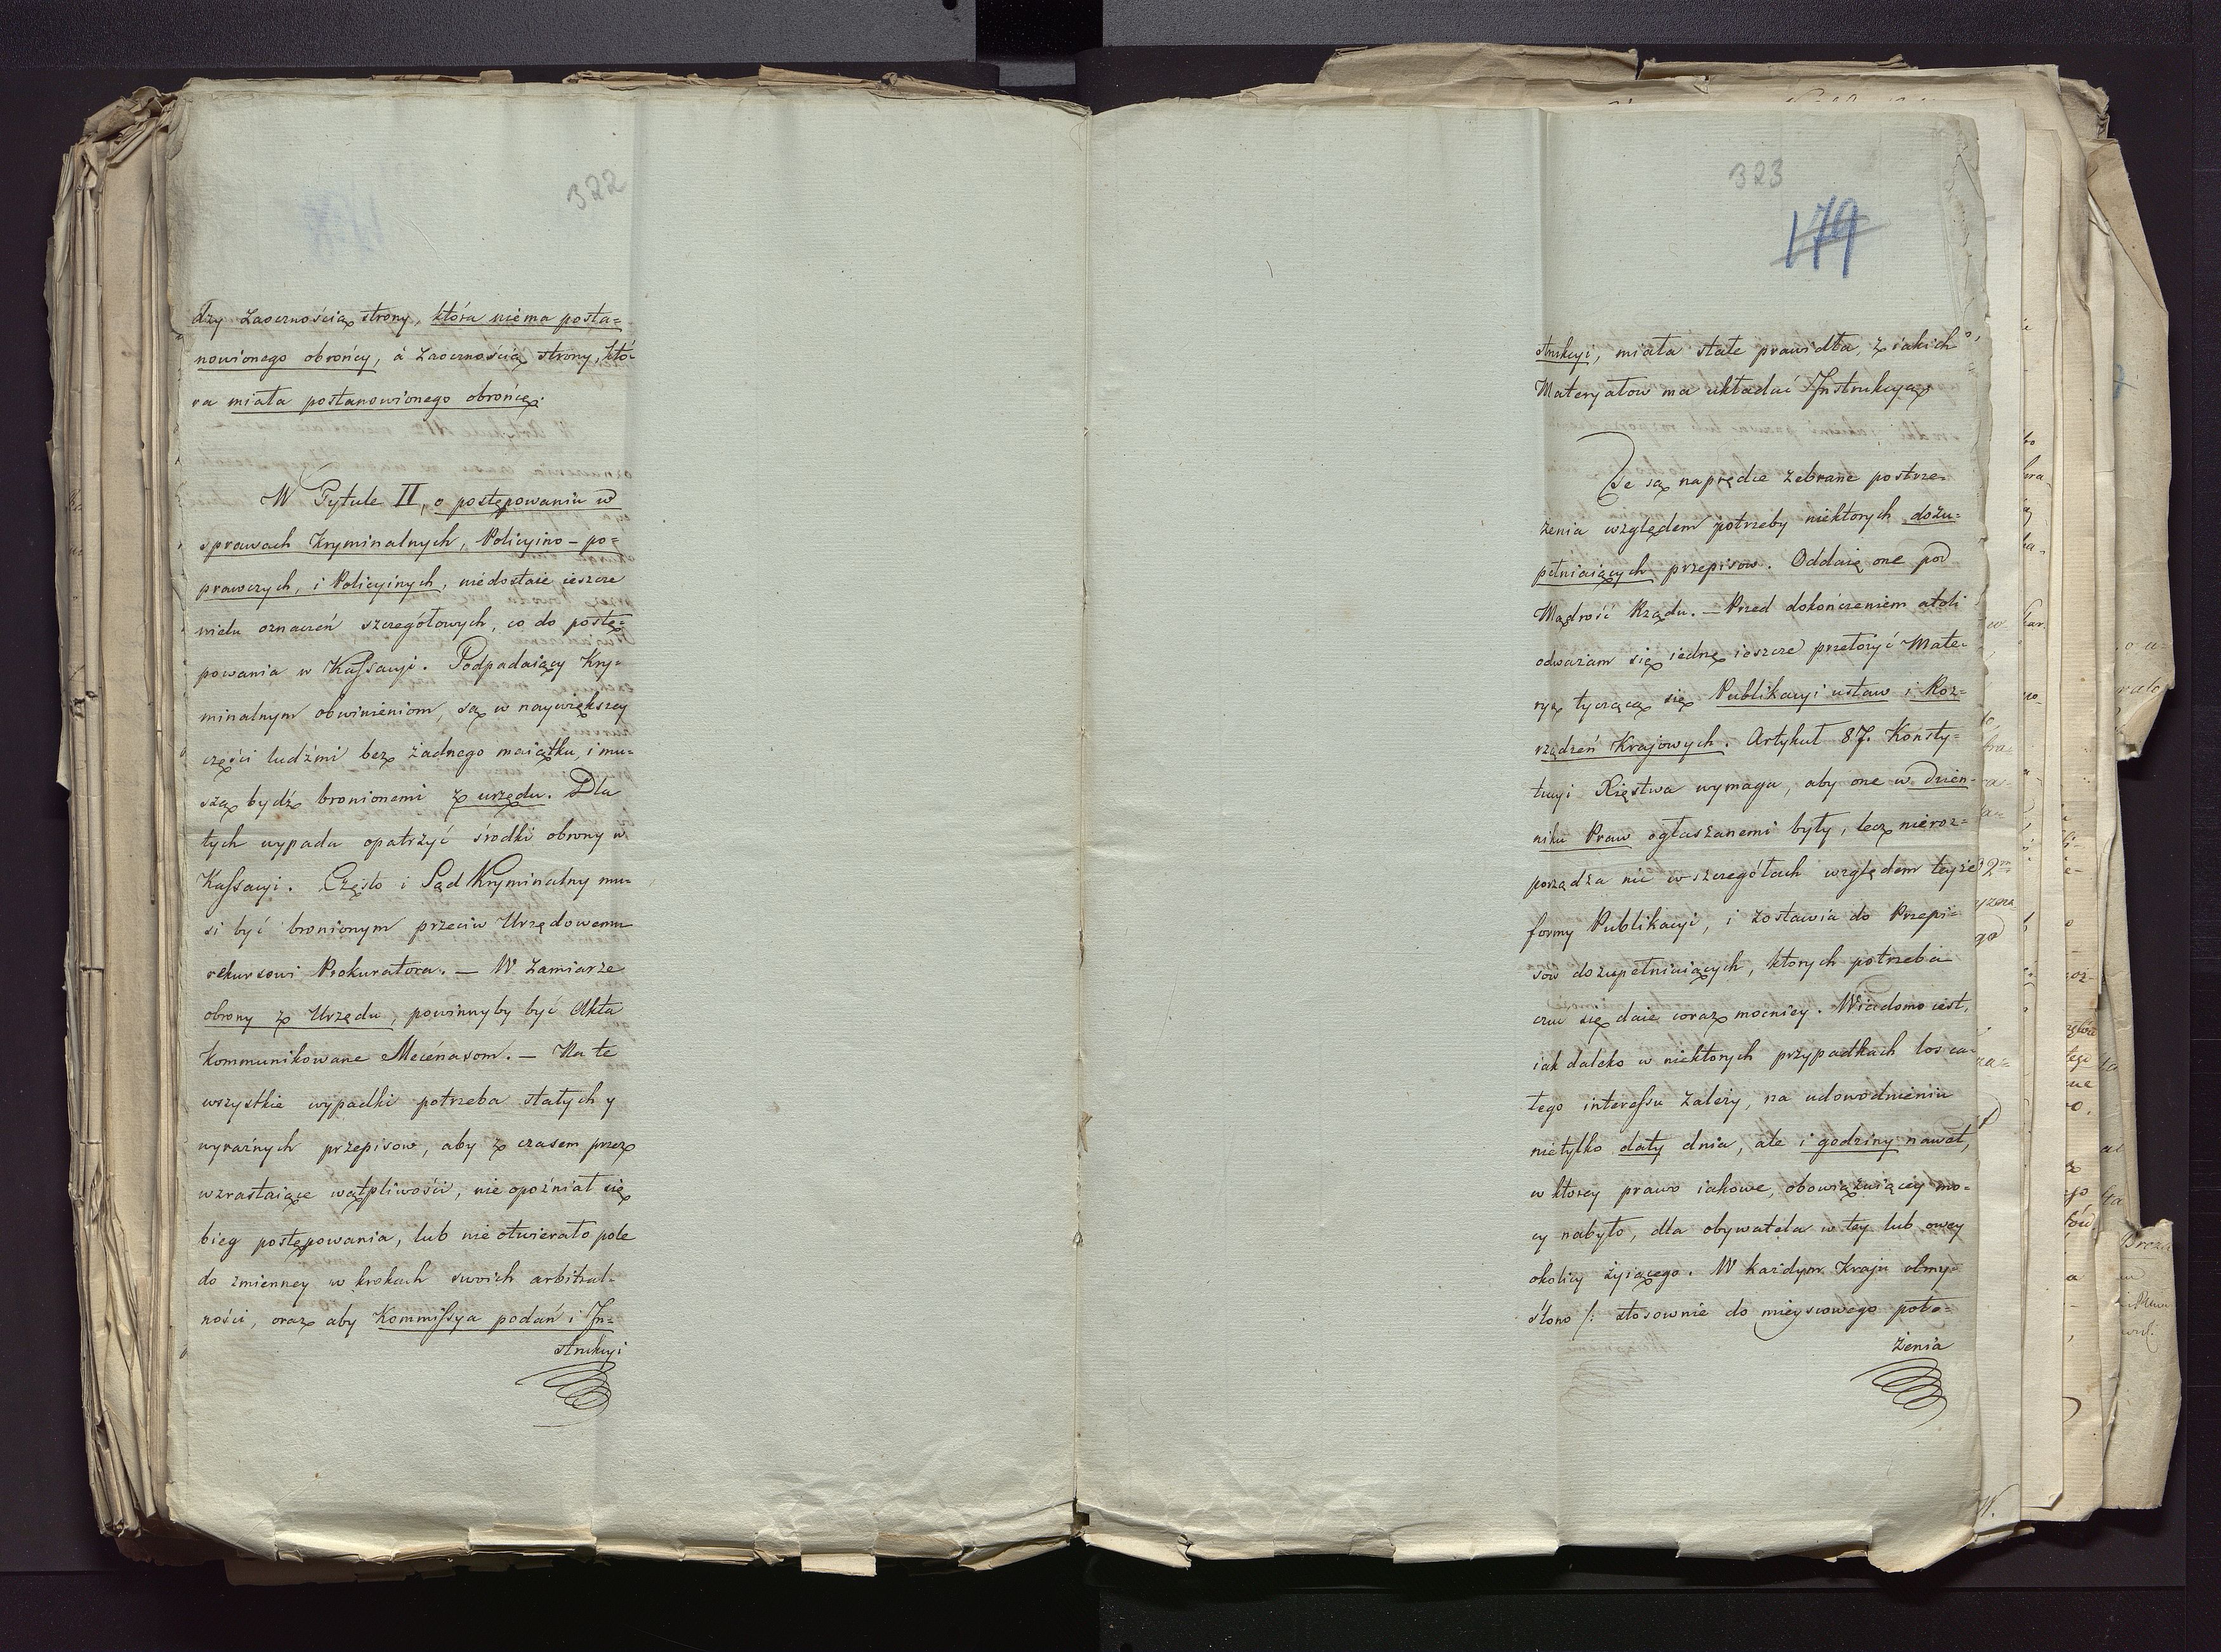 322
dzy Zaocznością strony, która niema posta=
nowionego obrońcy, á Zaocznością strony, któ=
ra miała postanowionego obrońcę.
W Tytule II, o postępowaniu w
sprawach Kryminalnych, Policyino-po=
prawczych, i Policyinych, niedostaie ieszcze
wielu oznaczeń szczegółowych, co do postę=
powania w Kassacyi. Podpadaiący Kry=
minalnym obwinieniom, są w naywiększey
części ludźmi bez żadnego maiątku, i mu=
szą bydź bronionemi z urzędu. Dla
tych wypada opatrzyć środki obrony w
Kassacyi. Często i Sąd Kryminalny mu=
si być bronionym przeciw Urzędowemu
rekursowi Prokuratora. — W Zamiarze
obrony z Urzędu, powinnyby być Akta
Kommunikowane Mecenasom. — Na te
wszystkie wypadki potrzeba stałych y
wyraźnych przepisow, aby z czasem przez
wzrastaiące wątpliwości, nie opoźniał się
bieg postępowania, lub nie otwierało pole
do zmienney w krokach swoich arbitral=
ności, oraz aby Kommissya podań i In=
strukcyi
323
179
strukcyi, miała stałe prawidła, z iakich
Materyałow ma układać Instrukcyą.
Te są naprędce zebrane postrze=
żenia względem potrzeby niektorych dozu=
pełniaiących przepisow. Oddaię one pod
Mądrość Rządu. — Przed dokończeniem atoli
odważam się iednę ieszcze przełożyć Mate=
ryą tyczącą się Publikacyi ustaw i Roz=
rządzeń Krajowych. Artykuł 87. Konsty=
tucyi Xięstwa wymaga, aby one w Dzien=
niku Praw ogłaszanemi były, lecz nieroz=
porządza nic w szczegółach względem teyże
formy Publikacyi, i zostawia do Przepi=
sow dozupełniaiących, ktorych potrzeba
czuć się daie coraz mocniey. Wiadomo iest,
iak daleko w niektorych przypadkach los ca=
łego interessu zależy, na udowodnieniu
nietylko daty dnia, ale i godziny nawet,
w ktorey prawo iakowe, obowiązuiącey mo=
cy nabyło, dla obywatela w tey lub owey
okolicy żyiącego. W każdym Kraju obmy=
ślono /: stosownie do mieyscowego poło=
żenia